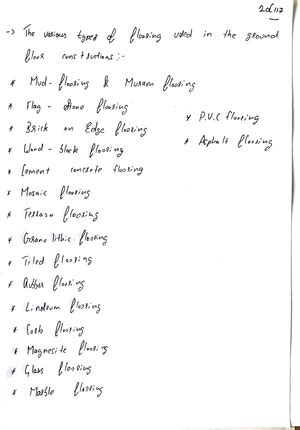 2 of 117
-> The various types of flooring used in the ground
floor constructions:-
* Mud-flooring & Muram flooring
* Flag-stone flooring
* Brick on Edge flooring
* Wood-block flooring
* Cement concrete flooring
* Mosaic flooring
* Terrazo flooring
* Grano lithic flooring
* Tiled flooring
* Rubber flooring
* Linoleum flooring
* Cork flooring
* Magnesite flooring
* Glass flooring
* Marble flooring
* P.V.C flooring
* Asphalt flooring